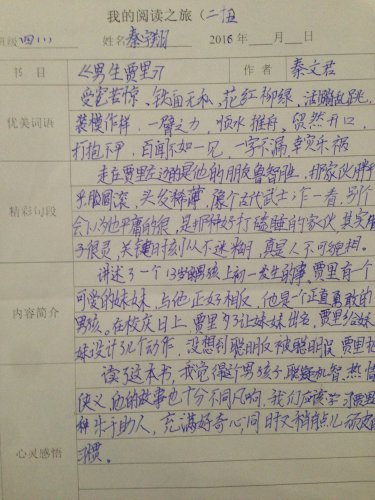 我的阅读之旅（二）
班级 四(1) 姓名 2016年 月 日
书 目 《男生贾里》 作 者 秦文君
优美词语
受宠若惊、铁面无私、花红柳绿、活蹦乱跳、
装模作样、一臂之力、顺水推舟、贸然开口、
打抱不平、百闻不如一见、一字不漏、幸灾乐祸
精彩句段
走在贾里左边的是他的朋友鲁智胜，那家伙胖乎
乎脸圆滚，头发稀薄，像个古代武士，乍一看，别人
会以为他平庸的很，是那种好打瞌睡的家伙，其实
子很灵，关键时刻从不迷糊，真是人不可貌相。
内容简介
讲述了一个13岁的男孩上初一发生的事。贾里有一个
可爱的妹妹，与他正好相反，他是个正直勇敢的
男孩。在校庆日上，贾里为了让妹妹出名，贾里给妹
妹设计了几个动作，没想到聪明反被聪明误，贾里
心灵感悟
读了这本书，我觉得这个男孩子聪颖机智、热情
侠义，他的故事也十分不同凡响，我们应该学习贾里
种乐于助人，充满好奇心，同时又稍有点儿顽皮的
习惯。